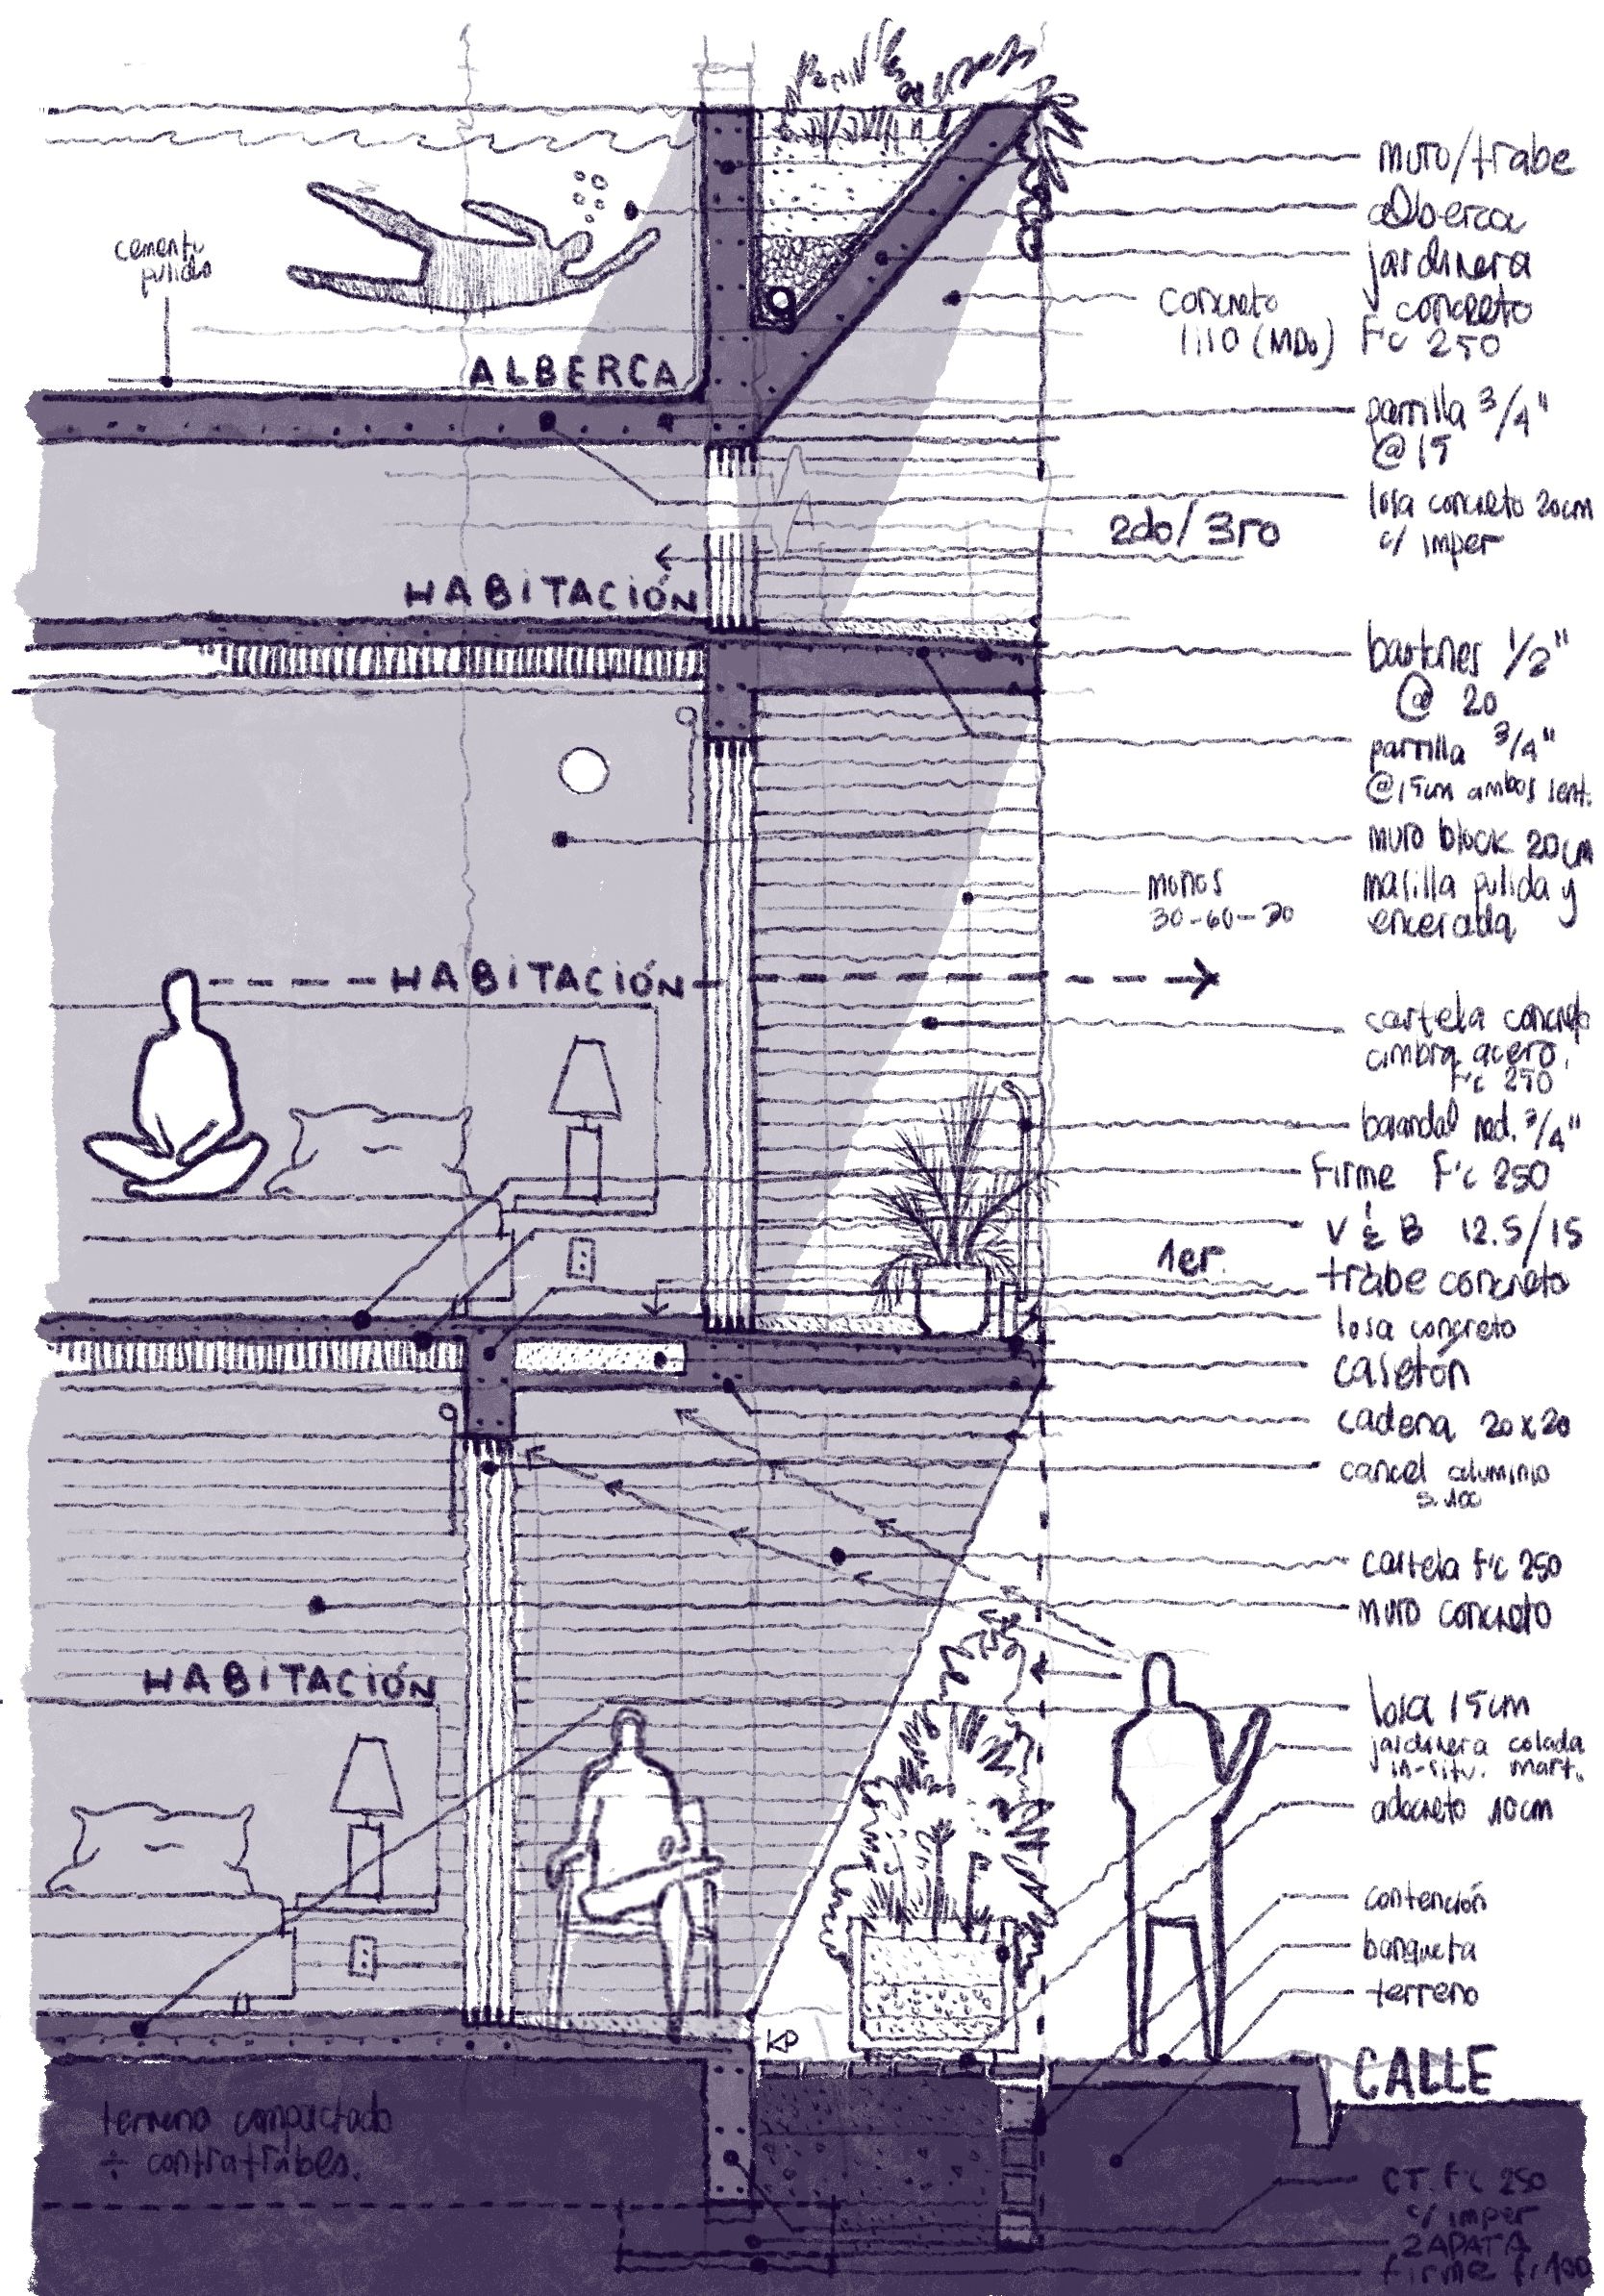 muro/trabe
alberca
jardinera
concreto
F'c 250
concreto
cemento
pulido
ALBERCA
parrilla 3/4"
@ 15
losa concreto 20cm
c/ imper
2do/3ro
HABITACIÓN
bastones 1/2"
@ 20
parrilla 3/4"
@15cm ambos sent.
muro block 20cm
masilla pulida y
encerada
30-60-90
HABITACIÓN
cartela concreto
cimbra acero,
F'c 250
barandal red. 3/4"
firme F'c 250
V & B 12.5/15
1er.
trabe concreto
losa concreto
casetón
cadena 20x20
cancel aluminio
cartela F'c 250
muro concreto
HABITACIÓN
losa 15cm
jardinera colada
in-situ. mart.
adocreto 10cm
contención
banqueta
terreno
CALLE
terreno compactado
÷ contratrabes.
CT. F'c 250
c/ imper
ZAPATA
firme f'c 100